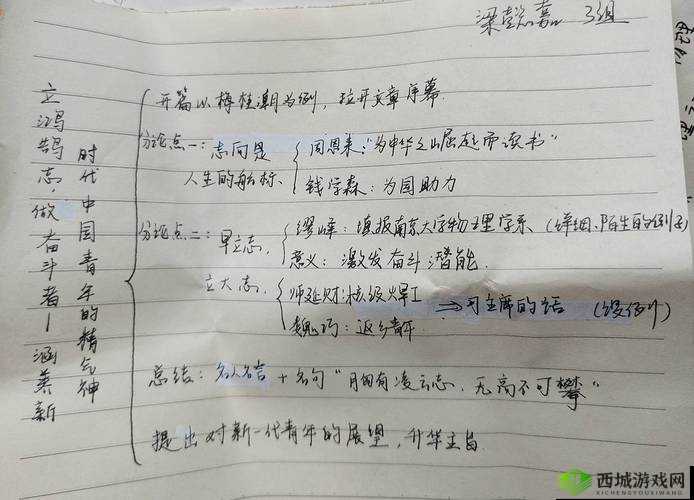 梁懿嘉 3组
立鸿鹄志,做奋斗者—涵养新
时代中国青年的精气神
开篇以梅桂潮为例,拉开文章序幕.
分论点一:志向是
人生的航标、
周恩来:"为中华之崛起而读书"
钱学森:为国助力
分论点二:早立志,
缪峰:填报南京大学物理学系 (详细、陌生的例子)
意义:激发奋斗潜能.
立大志,
师延财:核级焊工 ⇒ 习主席的话 (设例)
魏巧:返乡青年
总结:名人名言+名句"胸有凌云志,无高不可攀"
提出对新一代青年的展望,升华主旨.
西城游戏网
XICHENGYOUXIWANG